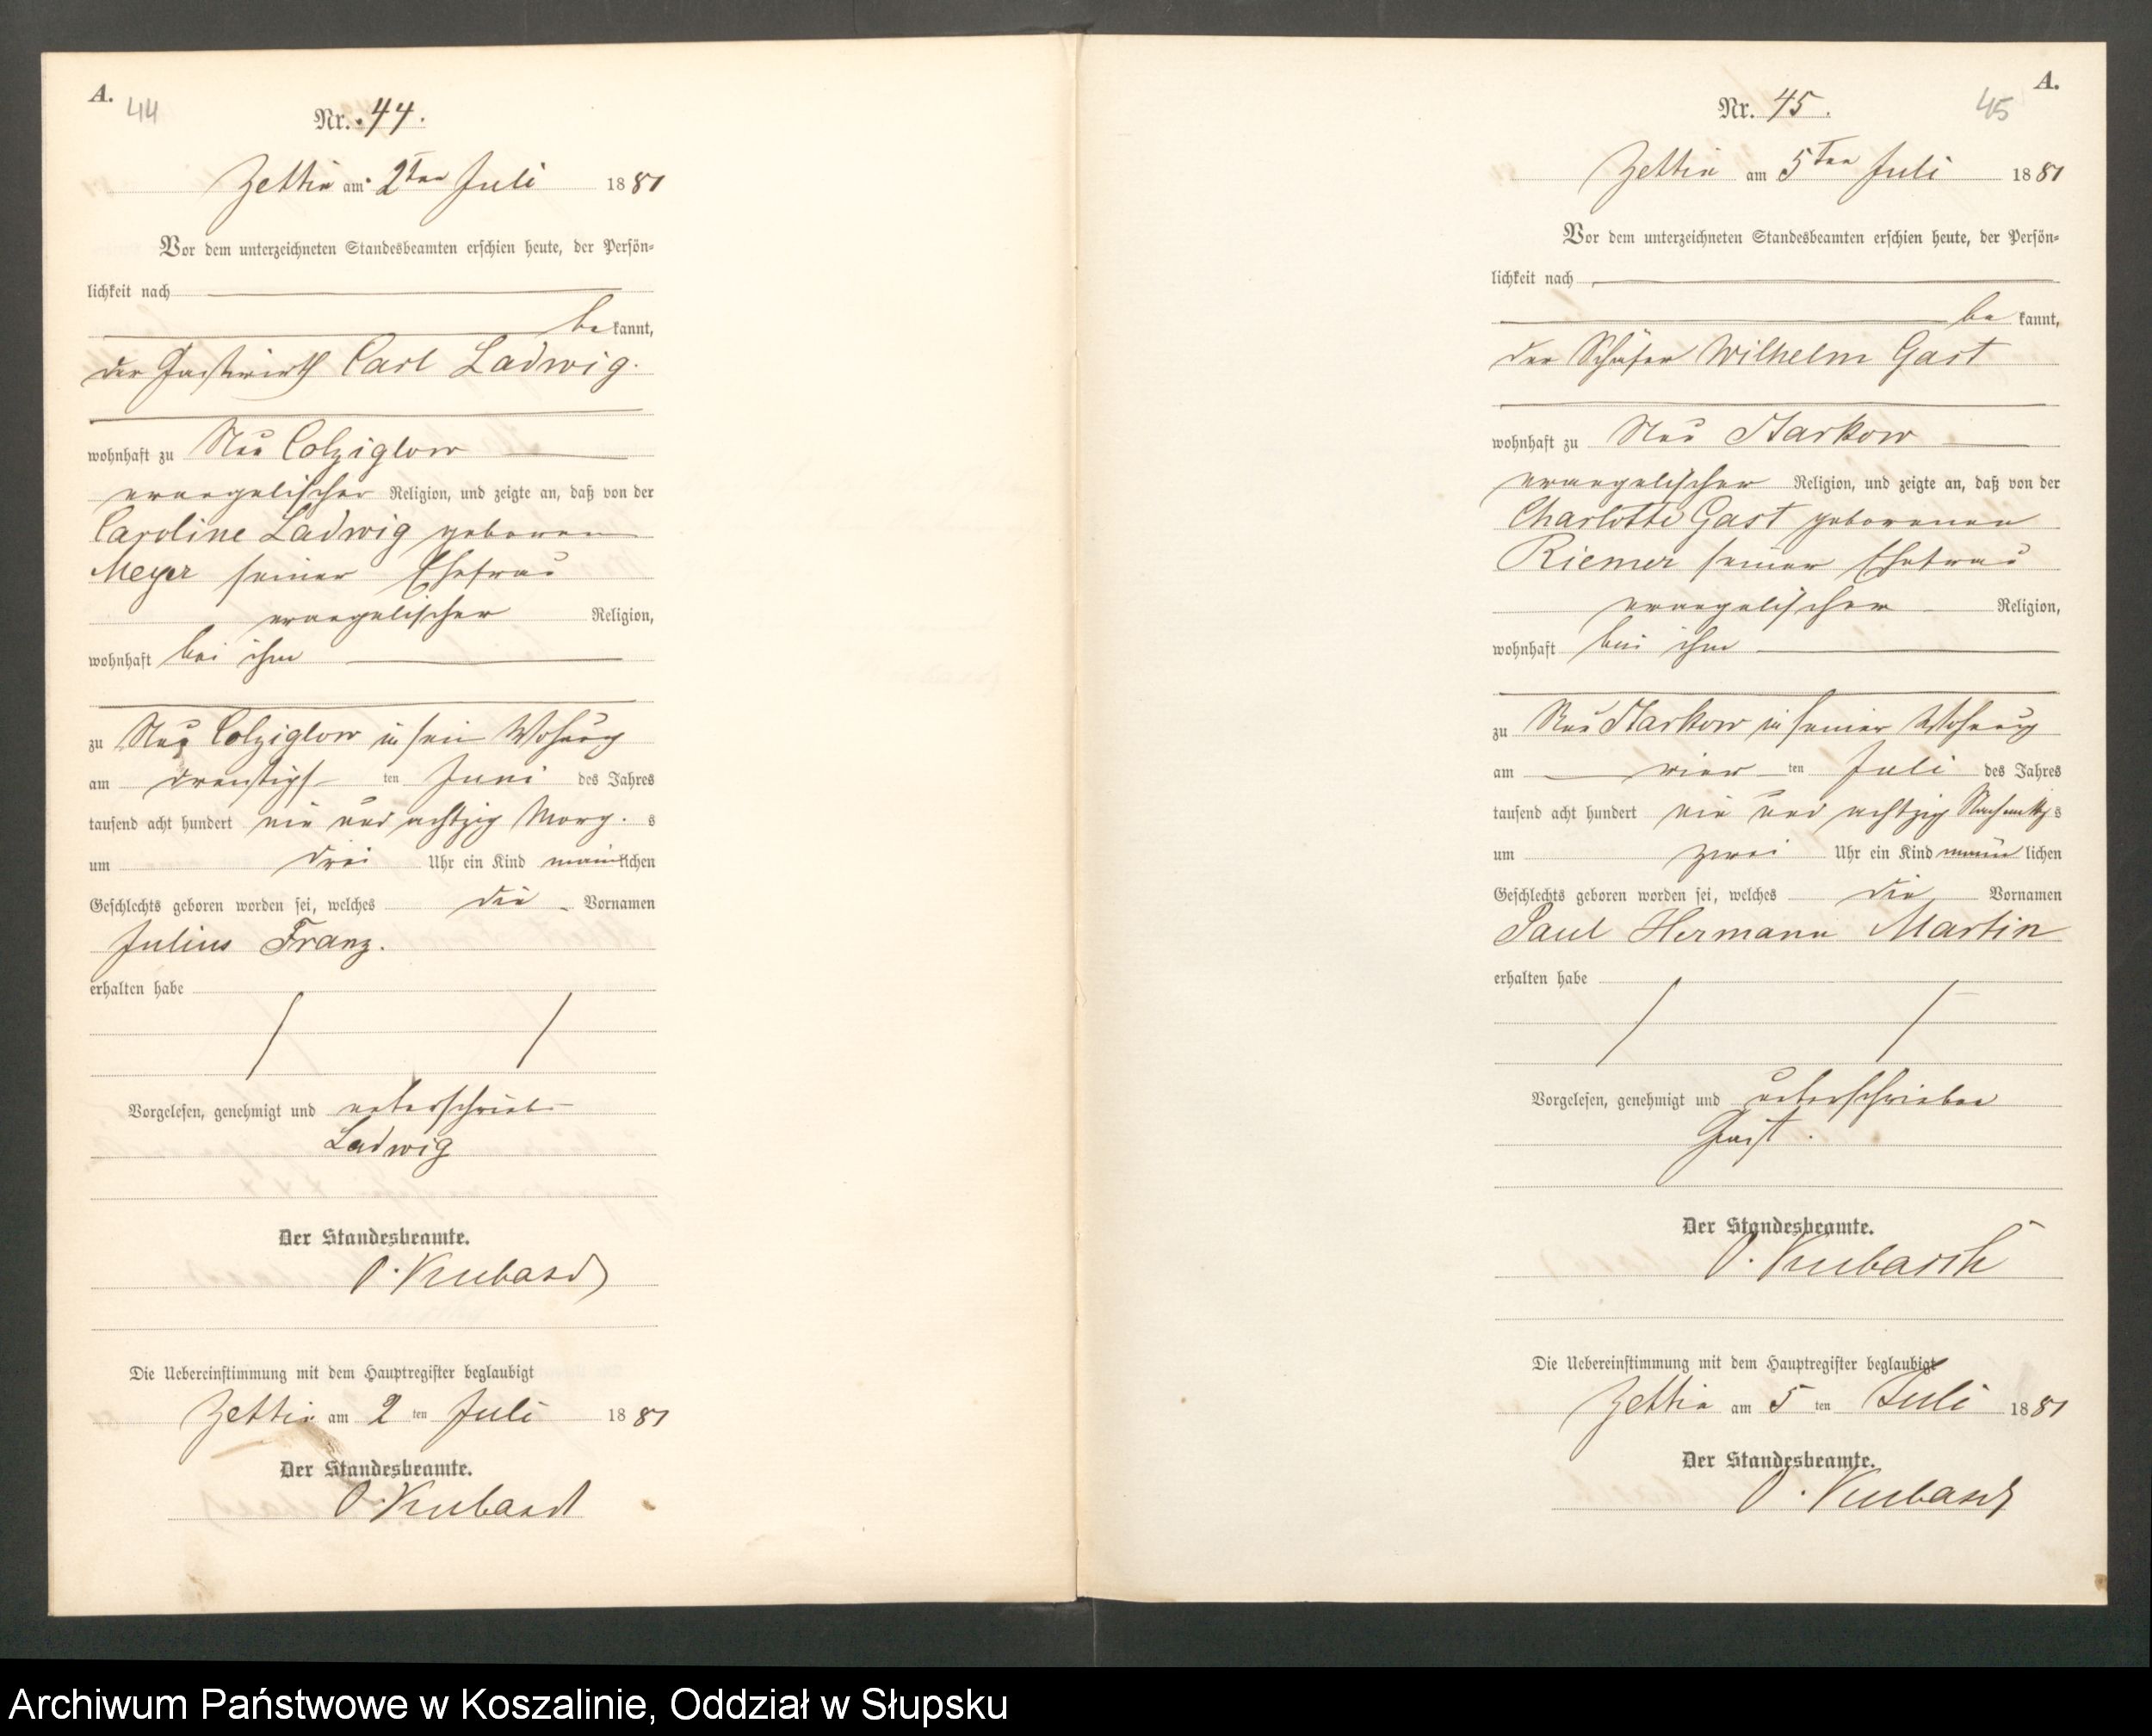 A.
44
Nr. 44.
Zettin am 2ten Juli 1881
Vor dem unterzeichneten Standesbeamten erschien heute, der Persön-
lichkeit nach
bekannt,
der Gastwirth Carl Ladwig.
wohnhaft zu Neu Colziglow
evangelischer Religion, und zeigte an, daß von der
Caroline Ladwig geboren
Meyer seiner Ehefrau
evangelischer Religion,
wohnhaft bei ihm
zu Neu Colziglow in sein Wohnung
am dreißigst ten Juni des Jahres
tausend acht hundert ein und achtzig Morg. s
um drei Uhr ein Kind männlichen
Geschlechts geboren worden sei, welches die Vornamen
Julius Franz.
erhalten habe
Vorgelesen, genehmigt und unterschrieb
Ladwig
Der Standesbeamte.
O. Kubasch
Die Uebereinstimmung mit dem Hauptregister beglaubigt
Zettin am 2 ten Juli 1881
Der Standesbeamte.
O. Kubasch
A.
45
Nr. 45.
Zettin am 5ten Juli 1881
Vor dem unterzeichneten Standesbeamten erschien heute, der Persön-
lichkeit nach
bekannt,
der Schäfer Wilhelm Gast
wohnhaft zu Neu Starkow
evangelischer Religion, und zeigte an, daß von der
Charlotte Gast geborenen
Riemer seiner Ehefrau
evangelischer Religion,
wohnhaft bei ihm
zu Neu Starkow in seiner Wohnung
am vier ten Juli des Jahres
tausend acht hundert ein und achtzig Nachmittgs
um zwei Uhr ein Kind männlichen
Geschlechts geboren worden sei, welches die Vornamen
Paul Hermann Martin
erhalten habe
Vorgelesen, genehmigt und unterschrieben
Gast.
Der Standesbeamte.
O. Kubasch
Die Uebereinstimmung mit dem Hauptregister beglaubigt
Zettin am 5 ten Juli 1881
Der Standesbeamte.
O. Kubasch
Archiwum Państwowe w Koszalinie, Oddział w Słupsku